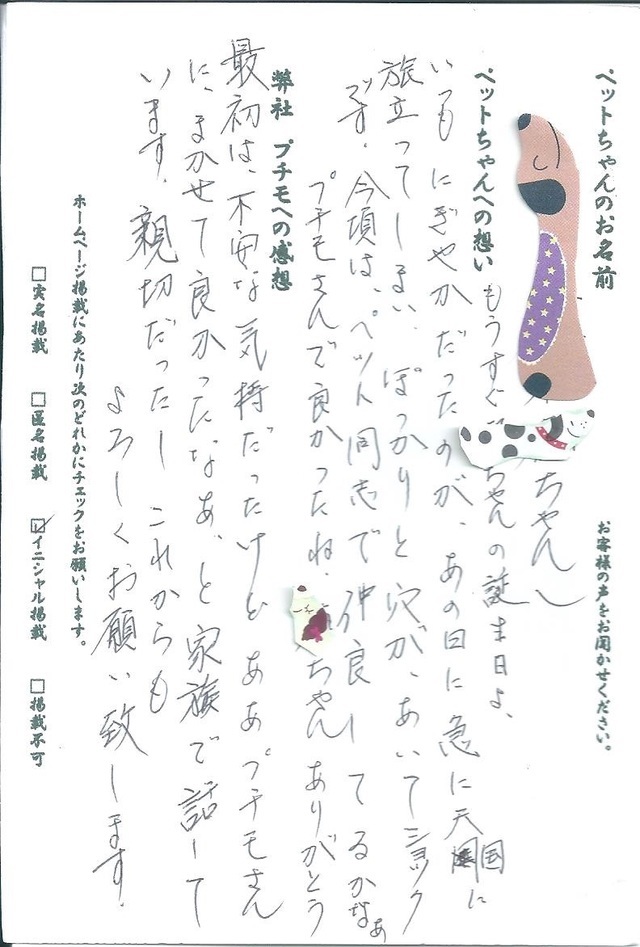 お客様の声をお聞かせください。
ペットちゃんのお名前
ちゃん
ペットちゃんへの想い
もうすぐ ちゃんの誕生日よ、
いつも にぎやかだったのが、あの日に急に天国に
旅立ってしまい、ぽっかりと穴が、あいてショック
です。今頃は、ペット同志で仲良してるかなぁ
プチモさんで良かったね。 ちゃん ありがとう
弊社 プチモへの感想
最初は、不安な気持だったけど ああプチモさん
に、まかせて良かったなあ、と家族で話して
います。親切だったし これからも
よろしくお願い致します。
ホームページ掲載にあたり次のどれかにチェックをお願いします。
□実名掲載 □匿名掲載 ☑イニシャル掲載 □掲載不可